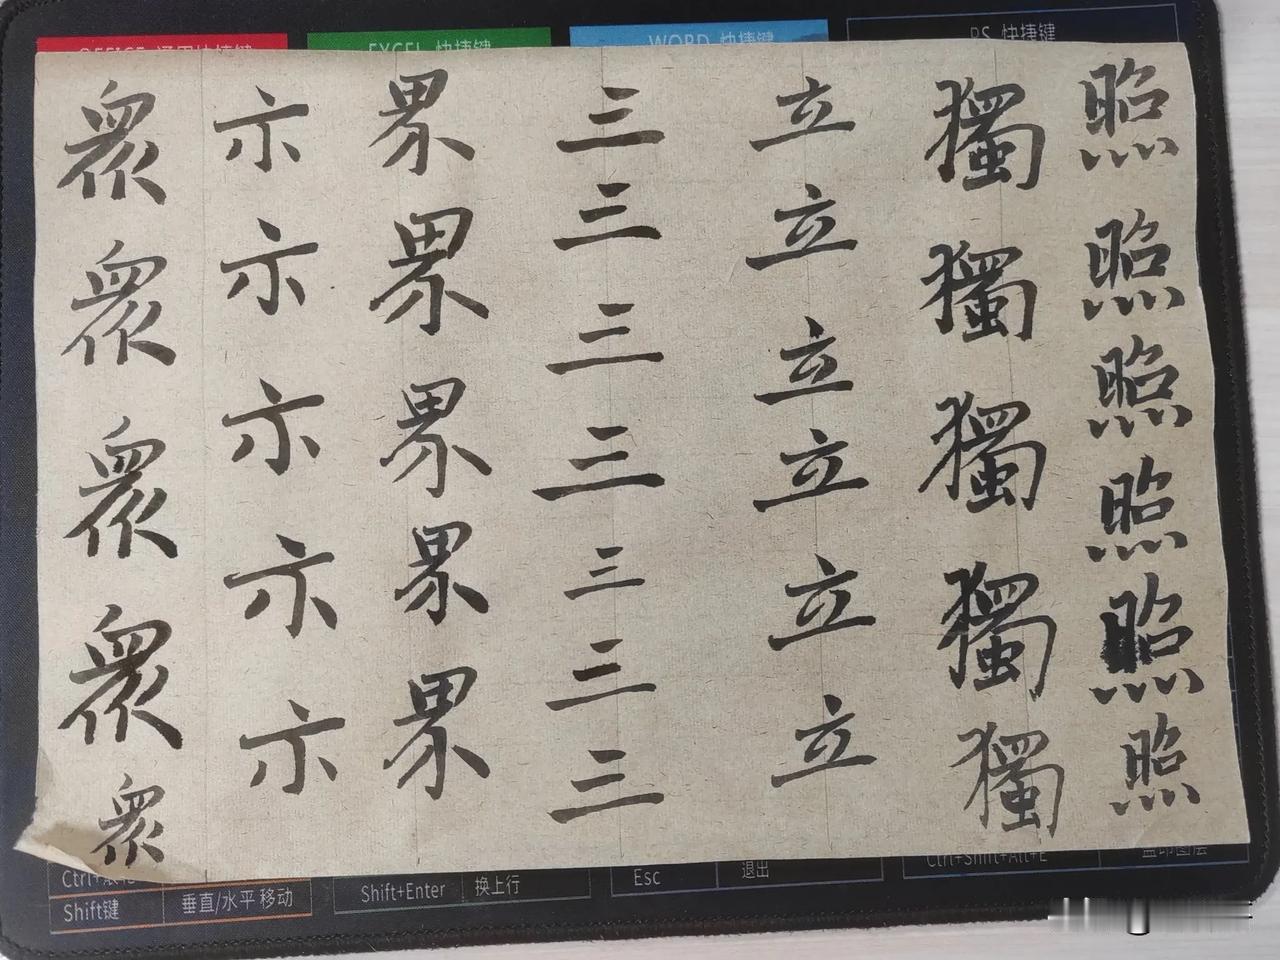 OFFICE 通用快捷键
EXCEL 快捷键
WORD 快捷键
PS 快捷键
照照照照照照
獨獨獨獨獨
立立立立立立
三三三三三三三
界界界界界
示示示示示
眾眾眾眾眾
Shift键 垂直/水平 移动
Shift+Enter 换上行
Esc 退出
Ctrl+Shift+Alt+E 盖印图层